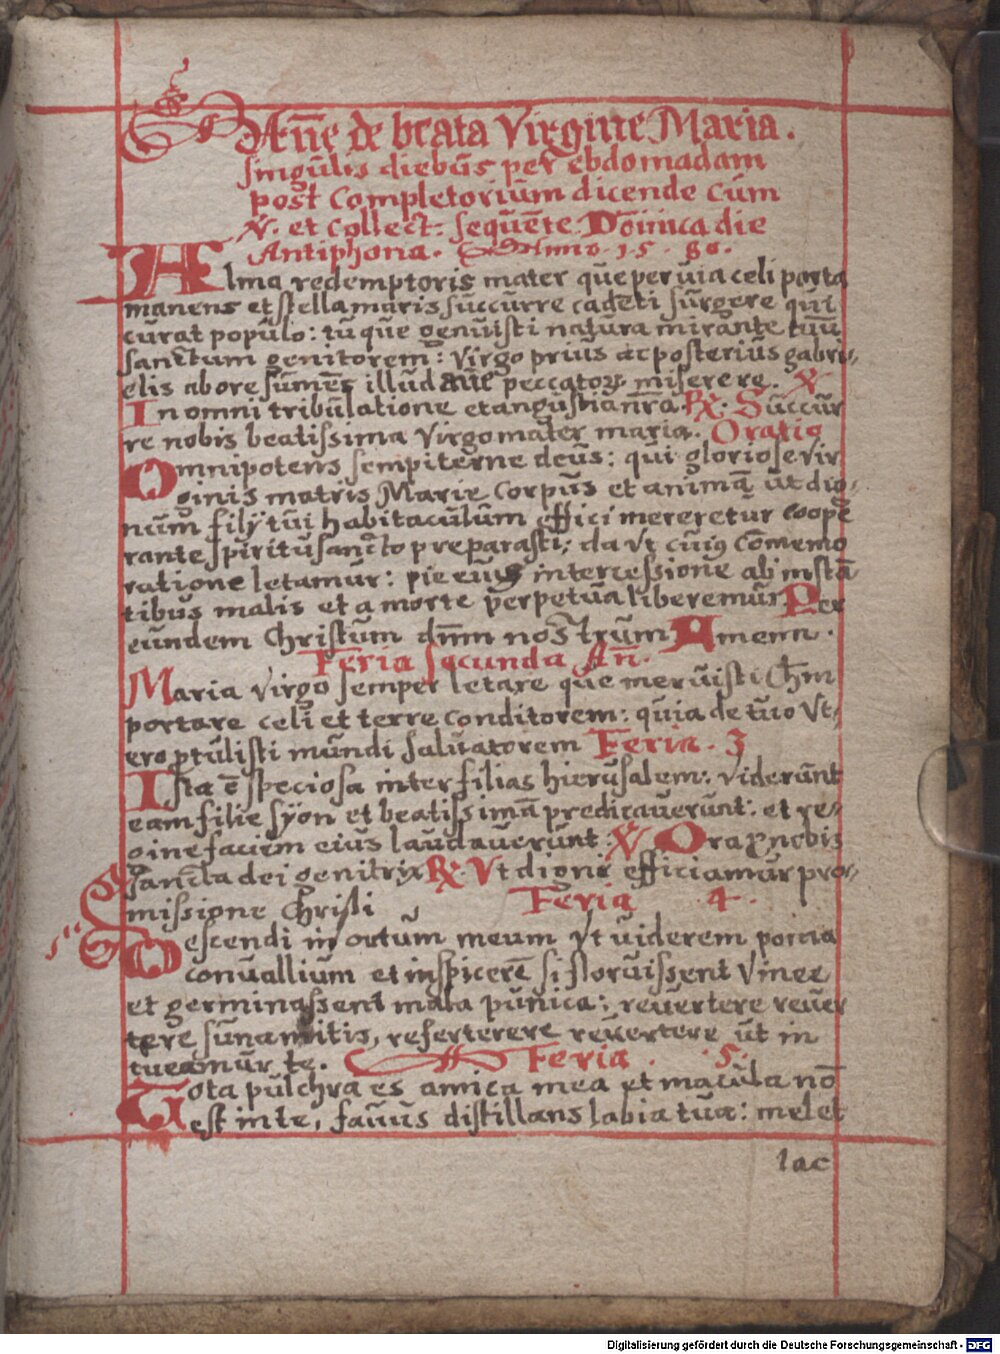 Añe de beata Virgine Maria.
singŭlis diebŭs per ebdomadam
post Completoriŭm dicende cŭm
V. et Collect: seqŭẽte Dominica die
Antiphona. Anno. 1.5. 80.
Alma redemptoris mater qŭe per ŭia celi porta
manens et stella maris sŭccŭrre cadẽti sŭrgere qŭi
cŭrat popŭlo: tŭ qŭe genŭisti natŭra mirante tŭŭ
sanctŭm genitorem: Virgo priŭs ac posteriŭs gabri,
elis ab ore sŭmẽs illŭd aŭe peccatorꝝ miserere. V
In omni tribŭlatione et angŭstia nr̃a. ℞. Sŭccŭr
re nobis beatissima Virgo mater maria. Oratio
Omnipotens sempiterne deŭs: qŭi gloriose vir
ginis matris Marie Corpŭs et animã ŭt dig,
nŭm filÿ tŭi habitacŭlŭm effici mereretŭr coope
rante spiritŭ sancto preparasti: da vt cŭiꝯ cõmemo
ratione letamŭr: pie eiŭs intercessione ab instã
tibŭs malis et a morte perpetŭa liberemŭr Per
eŭndem Christŭm dñm nostrŭm Amenn.
Feria secunda Añ.
Maria Virgo semper letare qŭe merŭisti Chr̃m
portare celi et terre conditorem: qŭia de tŭo Vt,
ero ꝓtŭlisti mŭndi salŭatorem Feria. 3
Ista ẽ speciosa inter filias hierŭsalem: Viderŭnt
eam filie sÿon et beatissimã predicaŭerŭnt: et re,
gine faciem eiŭs laŭdaŭerŭnt: V Ora ꝓ nobis
Sancta dei genitrix ℞. Vt digni efficiamŭr pro,
missione Christi Feria 4.
Descendi in ortŭm meŭm Vt ŭiderem pomia
conŭalliŭm et inspicerẽ si florŭissent Vinee
et germinassent mala pŭnica: reŭertere reŭer
tere sŭnamitis, referterere reŭertere ŭt in
tŭeamŭr te. Feria. 5.
Tota pŭlchra es amica mea et macŭla nõ
est in te, faŭŭs distillans labia tŭa: mel et
lac
Digitalisierung gefördert durch die Deutsche Forschungsgemeinschaft - DFG